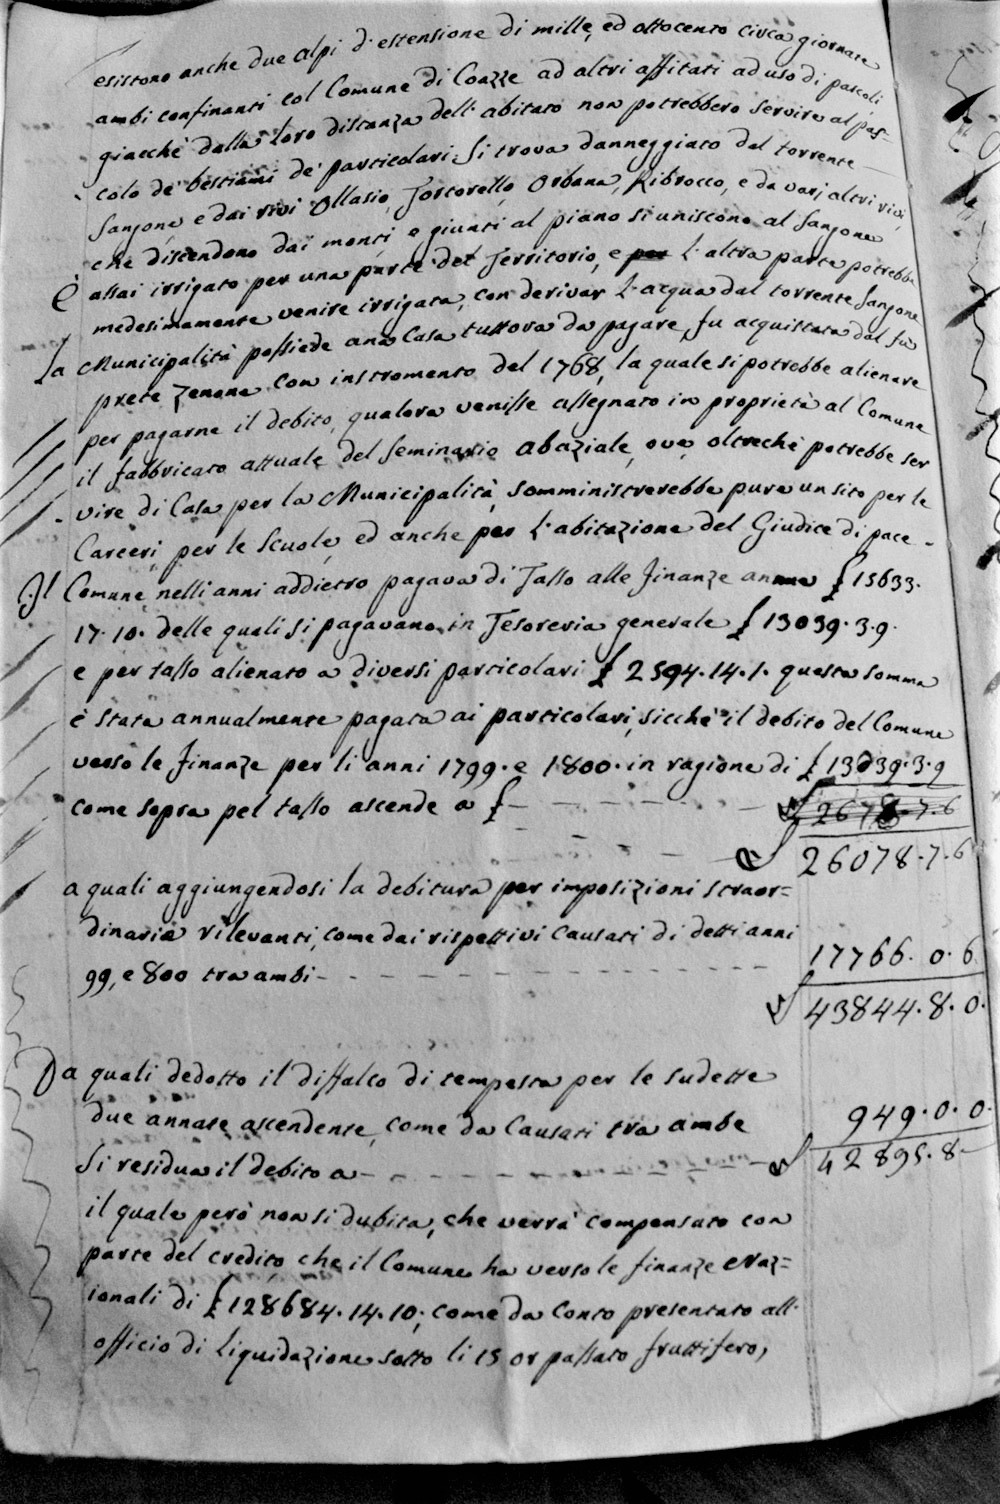 esistono anche due alpi d'estensione di mille, ed ottocento circa giornate
ambi confinanti col Comune di Coazze ad altri affitati ad uso di pascoli
giacchè dalla loro distanza dell'abitato non potrebbero servire al pas-
colo de' bestiami de' particolari. Si trova danneggiato dal torrente
Sangone, e dai rivi Ollasio, Tortorello, Orbana, Ribrocco, e da varj altri rivi,
che discendono dai monti, e giunti al piano si uniscono al Sangone
È assai irrigato per una parte del Territorio, e per l'altra parte potrebbe
medesimamente venire irrigata, con derivar l'acqua dal torrente Sangone
La Municipalità possiede una Casa tuttora da pagare, fu acquistata dal fu
prete Zenone con instromento del 1768, la quale si potrebbe alienare
per pagarne il debito, qualora venisse assegnato in proprietà al Comune
il fabbricato attuale del seminario abaziale, ove, oltrechè potrebbe ser
vire di Casa per la Municipalità, somministrerebbe pure un sito per le
Carceri, per le Scuole, ed anche per l'abitazione del Giudice di pace -
Il Comune nelli anni addietro pagava di Tasso alle finanze annue £ 15633.
17.10. delle quali si pagavano in Tesoreria generale £ 13039.3.9.
e per tasso alienato a diversi particolari £ 2594.14.1. questa somma
è stata annualmente pagata ai particolari, sicchè il debito del Comune
verso le finanze per li anni 1799. e 1800. in ragione di £ 13039.3.9
come sopra pel tasso ascende a £ - - - - 2678.7.6
26078.7.6
a quali aggiungendosi la debitura per imposizioni straor=
dinarie rilevanti, come dai rispettivi Causati di detti anni
99, e 800 tra ambi - - - - - - - - 17766.0.6
43844.8.0.
Da quali dedotto il diffalco di tempesta per le sudette
due annate ascendente, come da Causati tra ambe 949.0.0.
Si residua il debito a - - - - 42895.8-
il quale però non si dubita, che verrà compensato con
parte del credito che il Comune ha verso le finanze naz=
ionali di £ 128684.14.10; come da Conto presentato all'
officio di Liquidazione sotto li 15 or passato fruttifero,